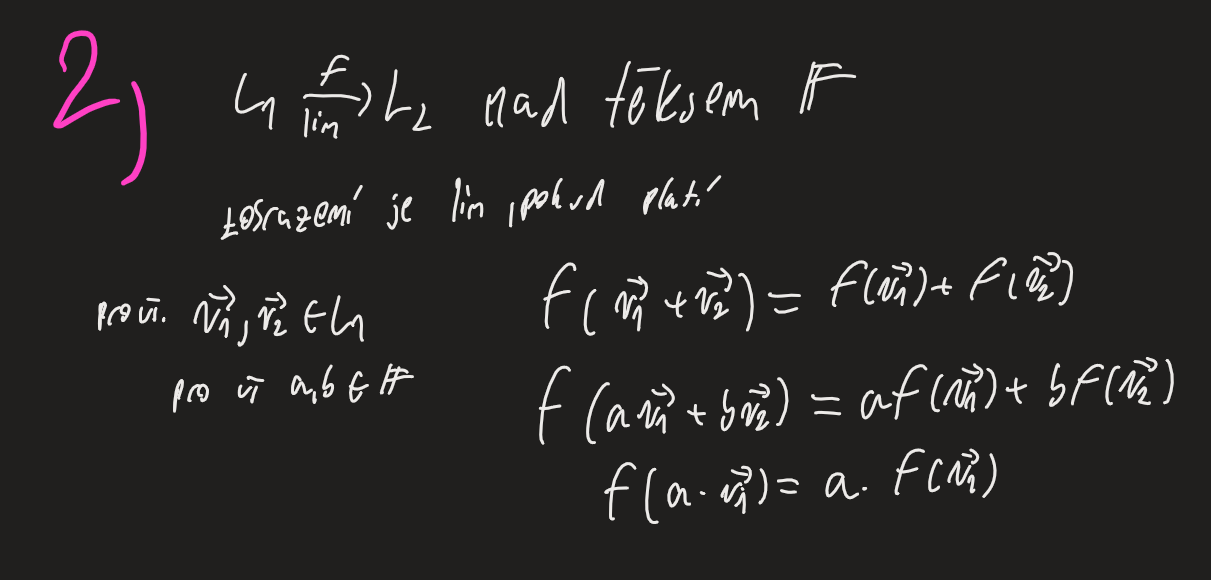 2,
L₁ →(f, lin) L₂ nad tělesem 𝔽
zobrazení je lin, pokud platí
f(v⃗₁ + v⃗₂) = f(v⃗₁) + f(v⃗₂)
pro vš. v⃗₁, v⃗₂ ∈ L₁
pro vš a,b ∈ 𝔽
f(a v⃗₁ + b v⃗₂) = a f(v⃗₁) + b f(v⃗₂)
f(a · v⃗₁) = a · f(v⃗₁)